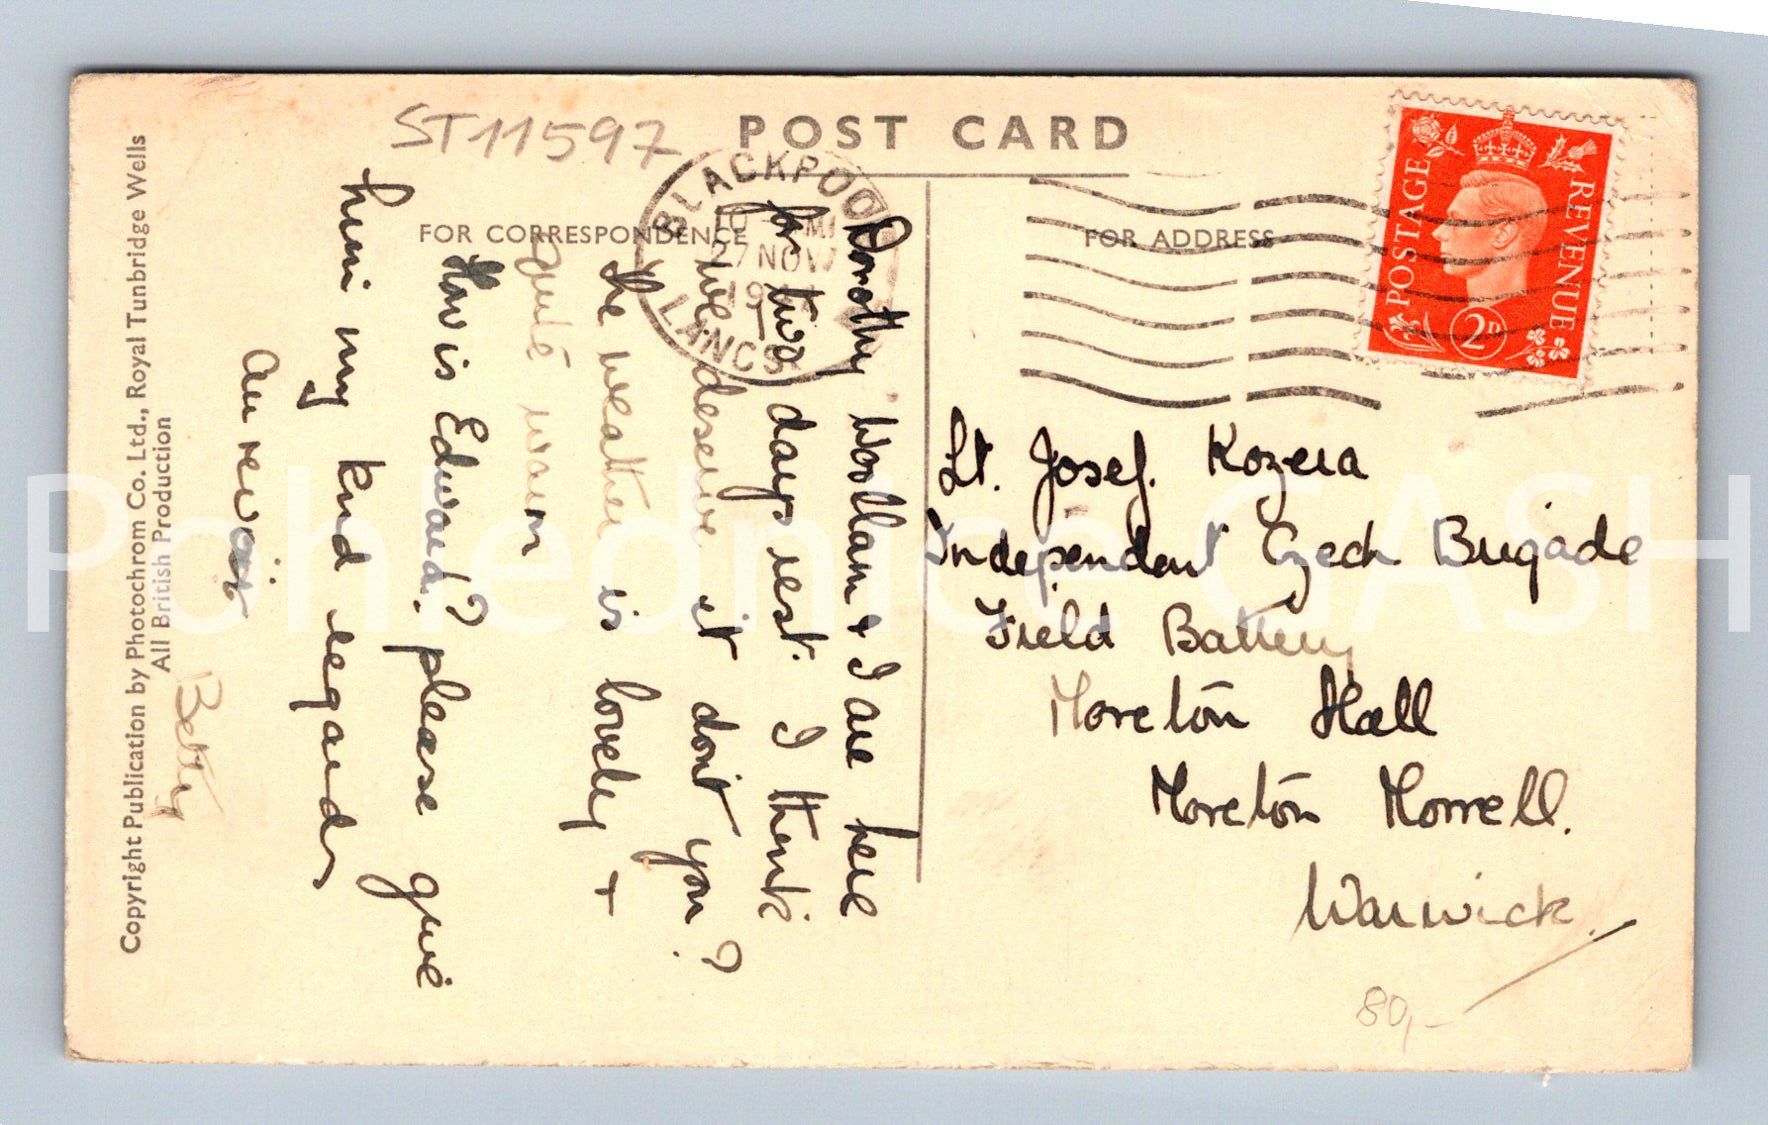 ST11597
POST CARD
FOR CORRESPONDENCE
FOR ADDRESS
BLACKPOOL
27 NOV
LANCS
POSTAGE REVENUE
2D
Dorothy Woollam + I are here
for two days rest. I think
we deserve it don't you?
The weather is lovely +
quite warm
How is Edward? please give
him my kind regards
Au revoir
Betty
Lt. Josef. Kozera
Independent Czech Brigade
Field Battery
Moreton Hall
Moreton Morrell.
Warwick.
80,-
Copyright Publication by Photochrom Co. Ltd., Royal Tunbridge Wells
All British Production
Pohlednice CASH